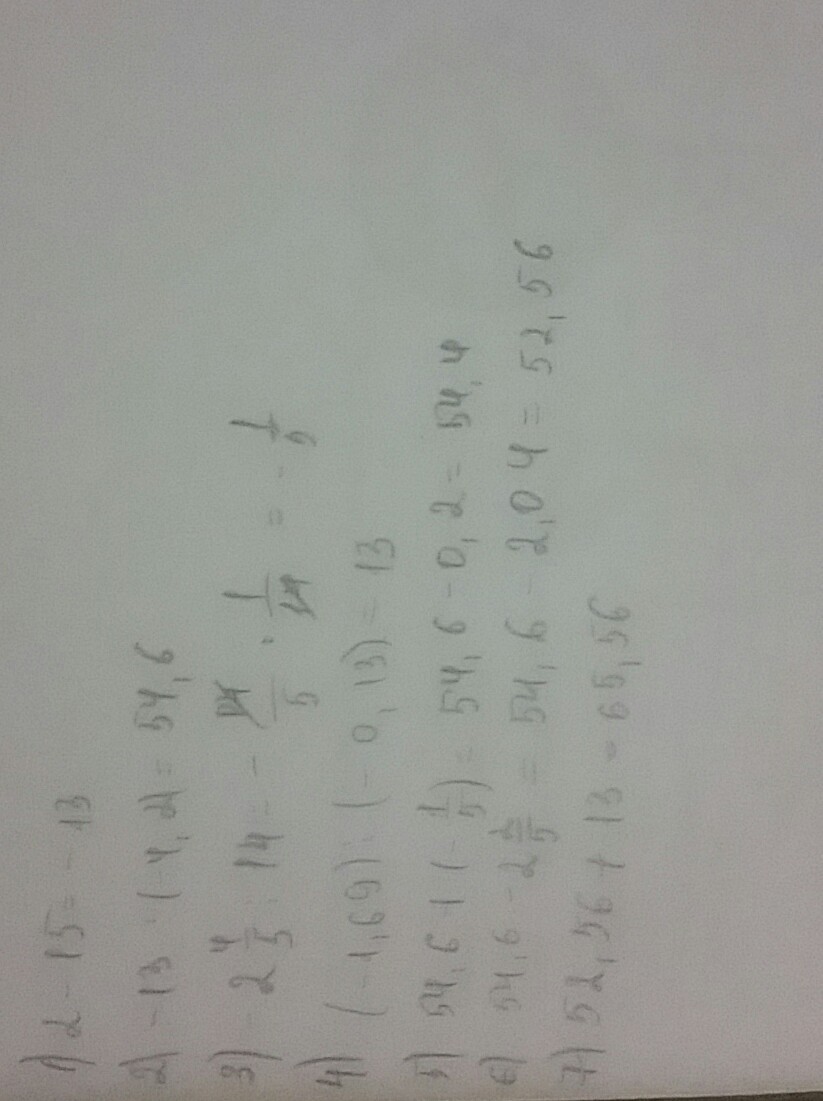 1) 2 - 15 = - 13
2) - 13 · (-4,2) = 54,6
3) - 2 4/5 : 14 = - 14/5 · 1/14 = - 1/5
4) (-1,69) : (-0,13) = 13
5) 54,6 + (- 1/5) = 54,6 - 0,2 = 54,4
6) 54,6 - 2 2/5 = 54,6 - 2,04 = 52,56
7) 52,56 + 13 = 65,56